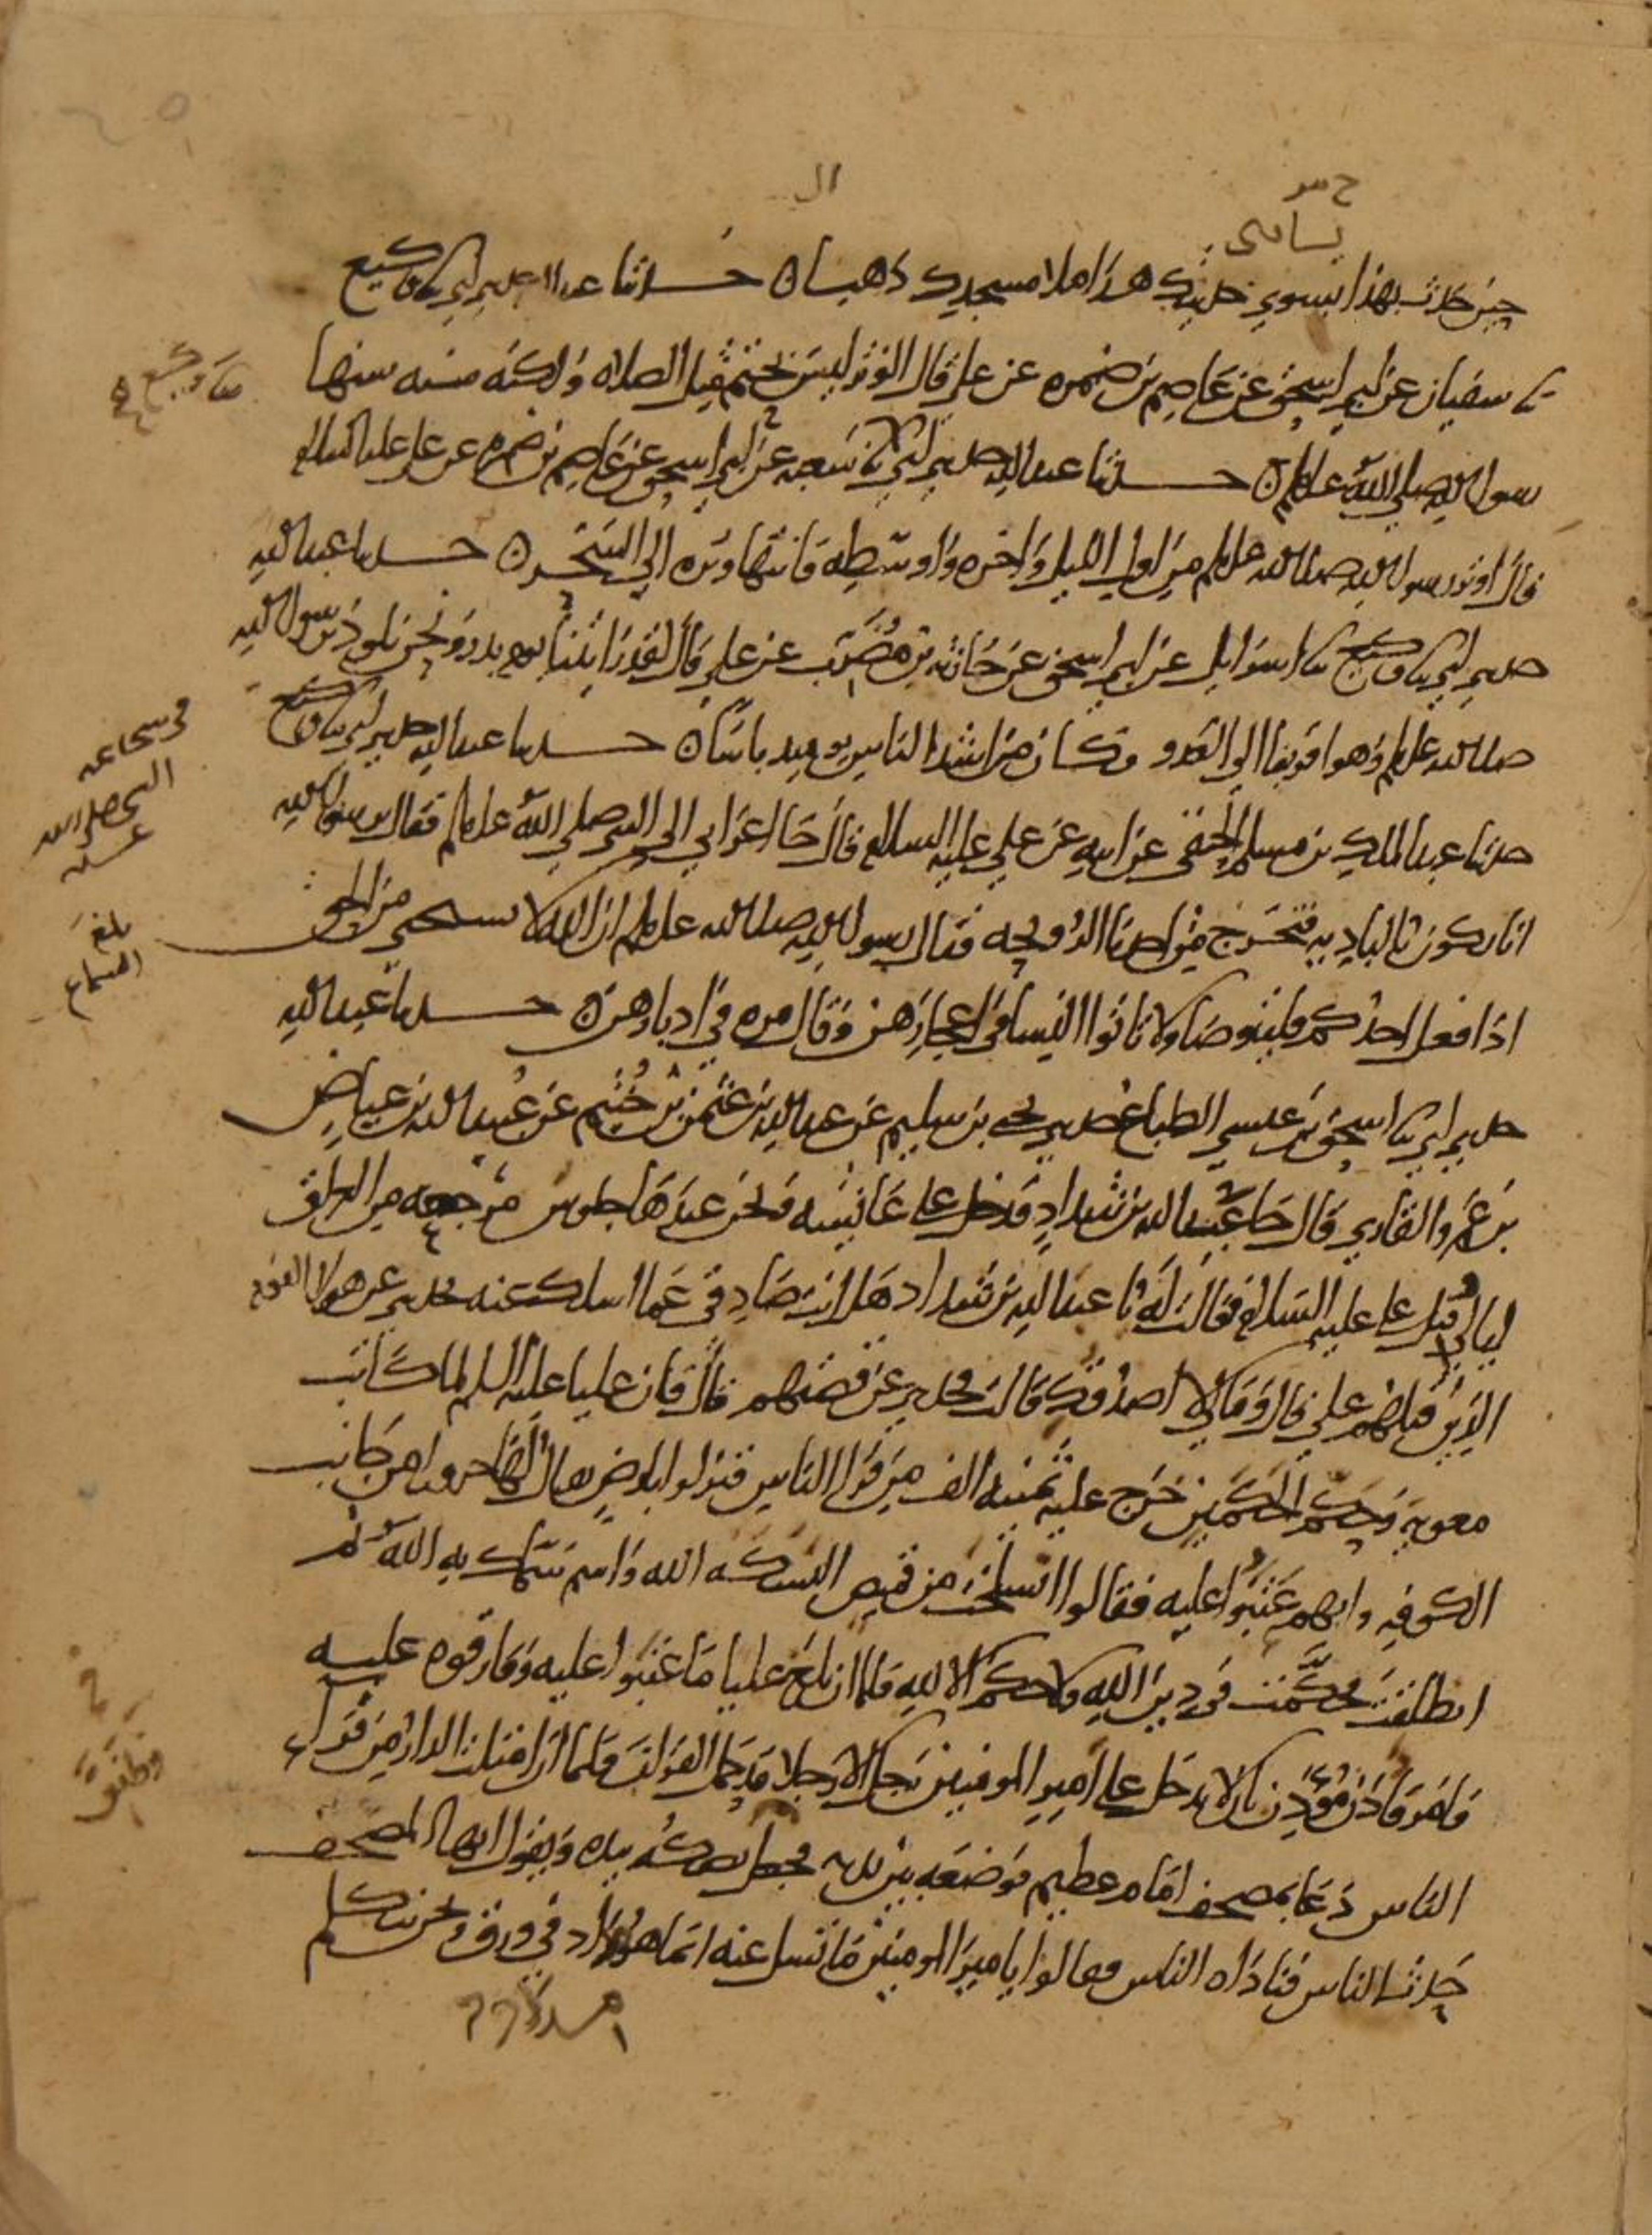 حين حدث بهذا يسوى حديثك هذا ملا مسجدك ذهبا حدثنا عبد الله حدثني ابي ثنا وكيع
ثنا سفيان عن ابي اسحق عن عاصم بن ضمره عن علي قال الوتر ليس بحتم مثل الصلاه ولكنه سنه سنها
ثنا وكيع
رسول الله صلى الله عليه وسلم حدثنا عبد الله حدثني ابي ثنا شعبه عن ابي اسحق عن عاصم بن ضمره عن علي عليه السلام
قال اوتر رسول الله صلى الله عليه وسلم من اول الليل واخره واوسطه فانتها وتره الى السحر حدثنا عبد الله
حدثني ابي ثنا وكيع ثنا اسرايل عن ابي اسحق عن حارثه بن مضرب عن علي قال لقد رايتنا يوم بدر ونحن نلوذ برسول الله
صلى الله عليه وسلم وهو اقربنا الى العدو وكان من اشد الناس يوميد باسا حدثنا عبد الله حدثني ابي ثنا وكيع
في شجاعه
النبي صلى الله
عليه
حدثنا عبد الملك بن مسلم الحنفي عن ابيه عن علي عليه السلام قال جا اعرابي الى النبي صلى الله عليه وسلم فقال يرسول الله
انا نكون بالباديه فتخرج من احدنا الرويحه فقال رسول الله صلى الله عليه وسلم ان الله لا يستحي من الحق
بلغ
السماع
اذا فعل احدكم فليتوضا ولا تاتوا النسا في اعجازهن وقال مره في ادبارهن حدثنا عبد الله
حدثني ابي ثنا اسحق بن عيسي الطباع حدثني يحي بن سليم عن عبد الله بن عثمن بن خثيم عن عبيد الله بن عياض
بن عمرو القاري قال جا عبد الله بن شداد فدخل على عايشه ونحن عندها جلوس مرجعه من العراق
ليالي قتل علي عليه السلام فقالت له يا عبد الله بن شداد هل انت صادقي عما اسلك عنه تحدثني عن هولا القوم
الذين قتلهم علي قال وما لي لا اصدقك قالت فحدثني عن قصتهم قال فان عليا عليه السلم لما كاتب
معويه وحكم الحكمين خرج عليه ثمنيه الف من قرا الناس فنزلوا بارض يقال لها حرورا من جانب
الكوفه وانهم عتبوا عليه فقالوا انسلخت من قميص البسكه الله واسم سماك به الله ثم
انطلقت فحكمت في دين الله ولا حكم الا لله فلما ان بلغ عليا ما عتبوا عليه وفارقوه عليه
فامر فاذن موذن ان لا يدخل على امير المومنين رجل الا رجلا قد حمل القران فلما ان امتلت الدار من قرا
الناس دعا بمصحف امام عظيم فوضعه بين يديه فجعل يصكه بيده ويقول ايها المصحف
حدث الناس فناداه الناس فقالوا يا امير المومنين ما تسل عنه انما هو مداد في ورق ونحن نتكلم